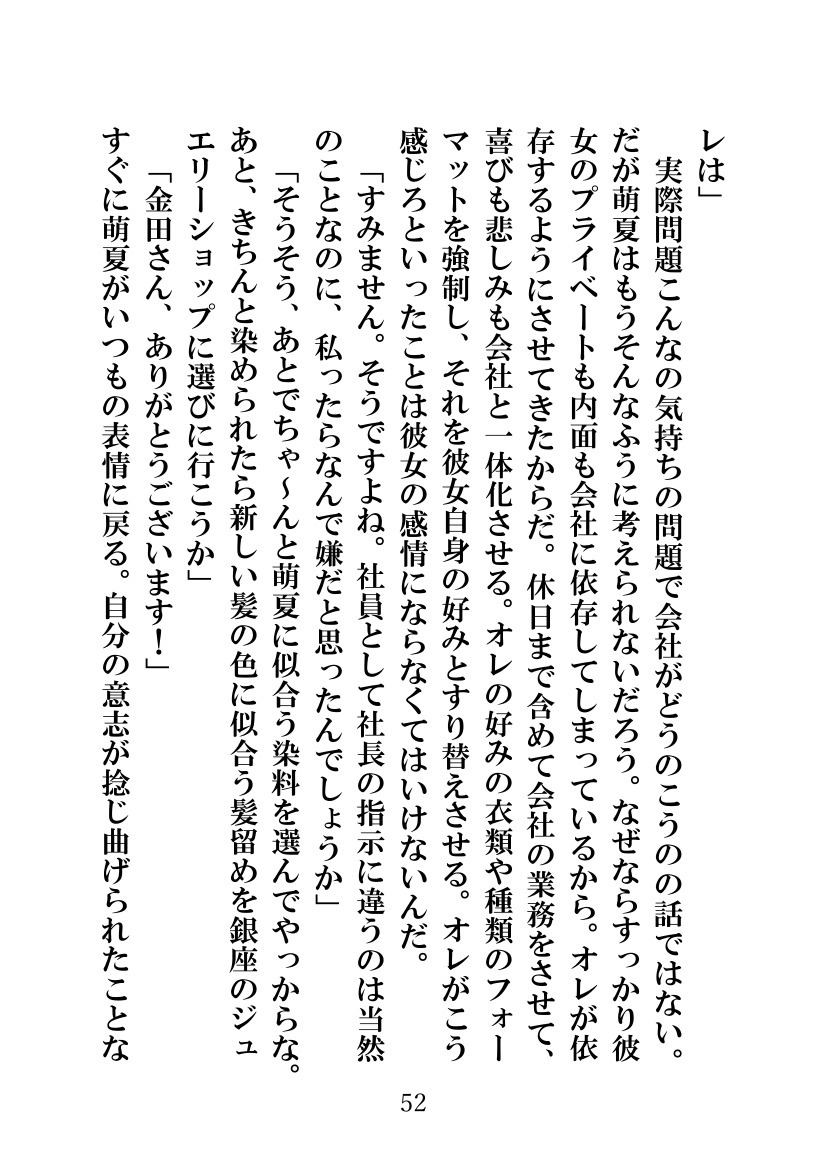 レは」
　実際問題こんなの気持ちの問題で会社がどうのこうのの話ではない。
だが萌夏はもうそんなふうに考えられないだろう。なぜならすっかり彼
女のプライベートも内面も会社に依存してしまっているから。オレが依
存するようにさせてきたからだ。休日まで含めて会社の業務をさせて、
喜びも悲しみも会社と一体化させる。オレの好みの衣類や種類のフォー
マットを強制し、それを彼女自身の好みとすり替えさせる。オレがこう
感じろといったことは彼女の感情にならなくてはいけないんだ。
「すみません。そうですよね。社員として社長の指示に違うのは当然
のことなのに、私ったらなんで嫌だと思ったんでしょうか」
「そうそう、あとでちゃ～んと萌夏に似合う染料を選んでやっからな。
あと、きちんと染められたら新しい髪の色に似合う髪留めを銀座のジュ
エリーショップに選びに行こうか」
「金田さん、ありがとうございます！」
すぐに萌夏がいつもの表情に戻る。自分の意志が捻じ曲げられたことな
52